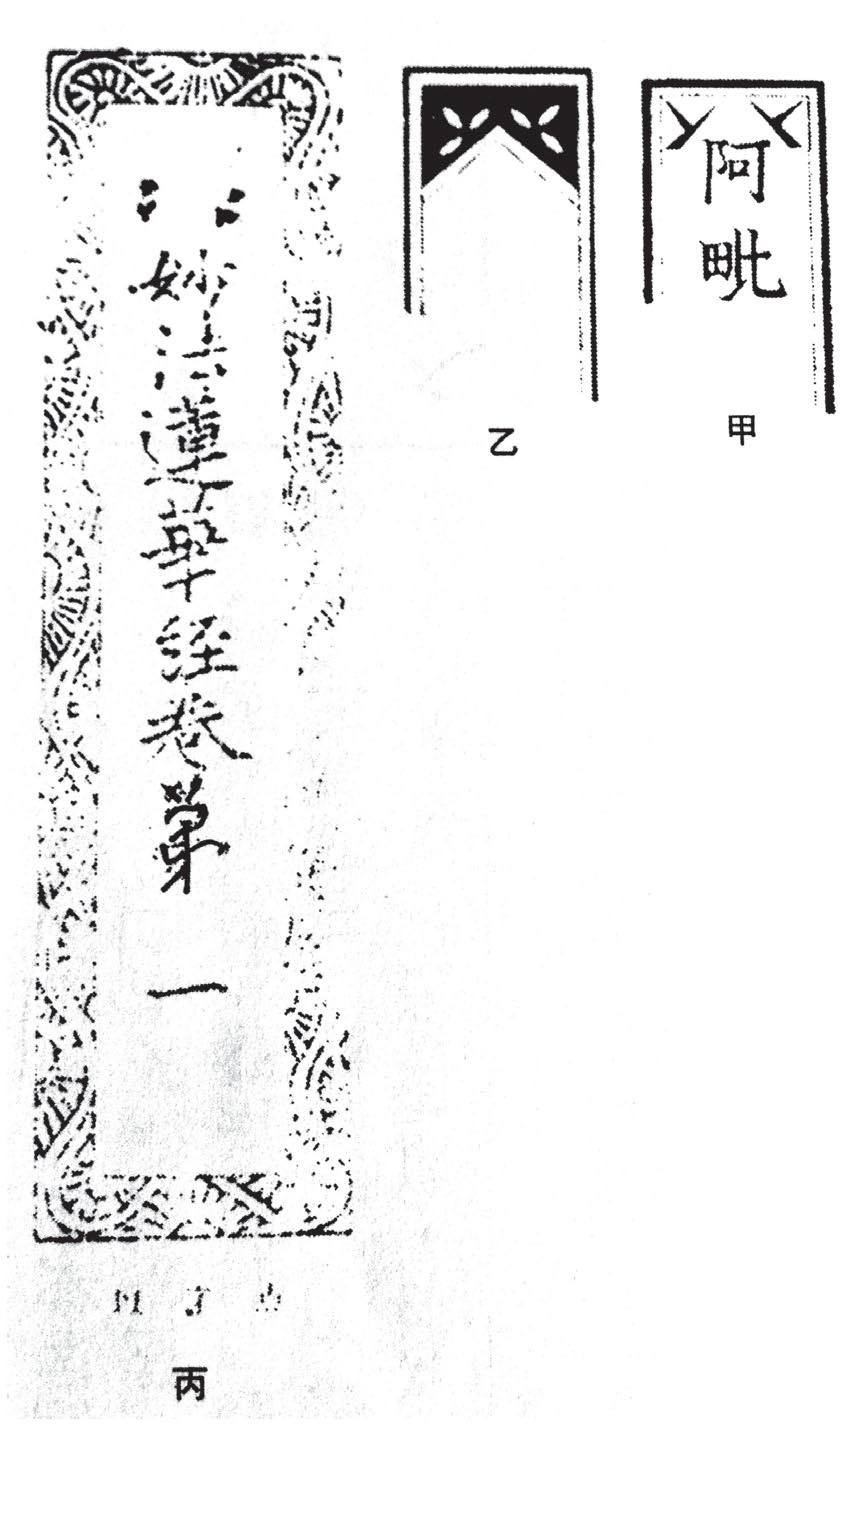 阿毗
甲
乙
妙法蓮華經卷第一
丙